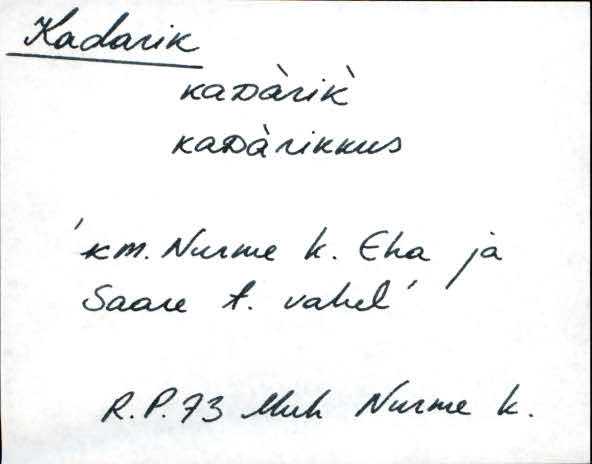 Kadarik
kaᴅàrik̀
kaᴅàrikkus
'km. Nurme k. Eha ja
Saare t. vahel'
R.P.73 Muh Nurme k.